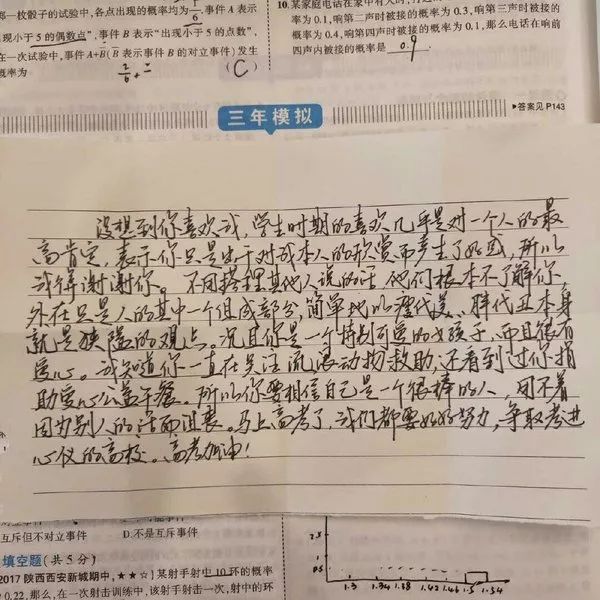 那一枚骰子的试验中,各点出现的概率均为1/6,事件 A 表示
现小于 5 的偶数点”,事件 B 表示“出现小于 5 的点数”,
在一次试验中,事件 A+B̄(B̄ 表示事件 B 的对立事件)发生
概率为 (C)
2/6 +
率为 0.1,响第二声时被接的概率为 0.3,响第三声时被接的
概率为 0.4,响第四声时被接的概率为 0.1,那么电话在响前
四声内被接的概率是 0.9.
▶答案见 P143
三年模拟
没想到你喜欢我,学生时期的喜欢几乎是对一个人的最
高肯定,表示你只是出于对我本人的欣赏而产生了好感,所以
我得谢谢你。不用搭理其他人说的话,他们根本不了解你,
外在只是人的其中一个组成部分,简单地以瘦代美、胖代丑本身
就是狭隘的观点。况且你是一个特别可爱的女孩子,而且很有
爱心。我知道你一直在关注流浪动物救助,还看到过你捐
助爱心公益午餐。所以你要相信自己是一个很棒的人,用不着
因为别人的话而沮丧。马上高考了,我们都要好好努力,争取考进
心仪的高校。高考加油!
互斥但不对立事件 D.不是互斥事件
填空题(共 5 分)
2017 陕西西安新城期中,★★☆]某射手射中 10 环的概率
0.22,那么,在一次射击训练中,该射手射击一次,射中的环
2.5
1
0.5
1.3 1.34 1.38 1.42 1.46 1.5 1.54